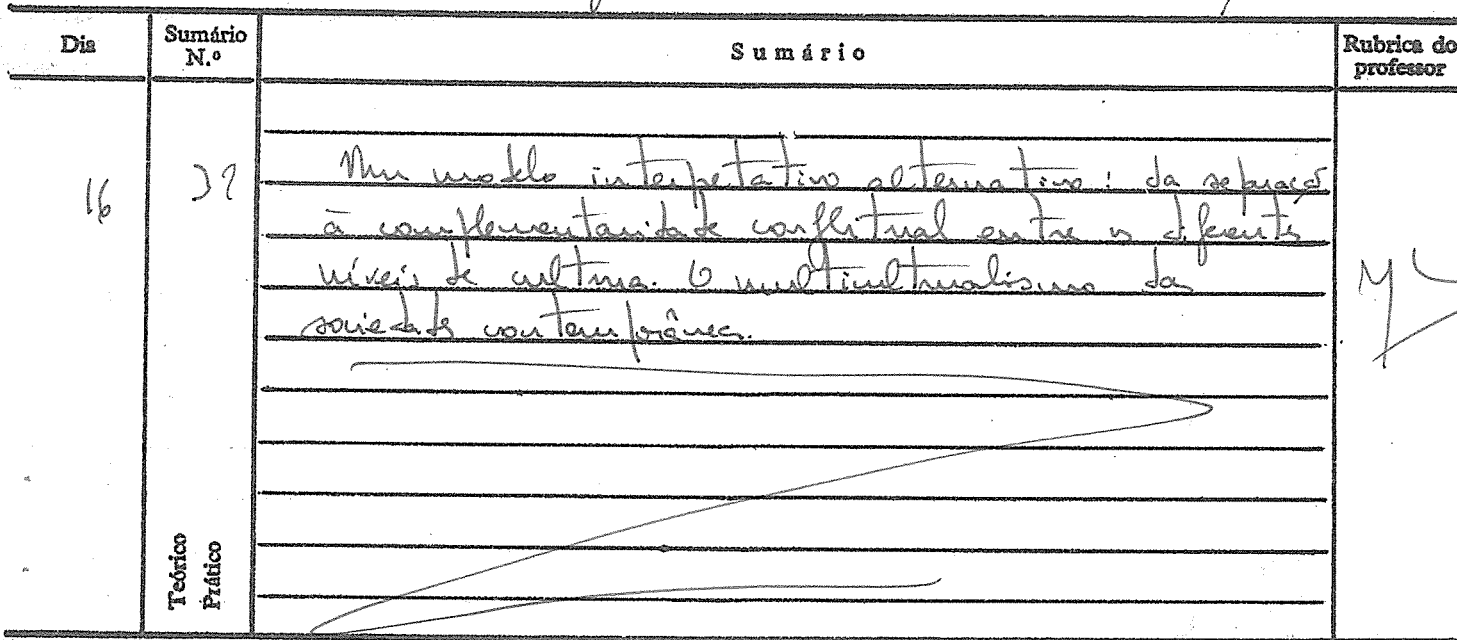 Dia
Sumário N.º
Sumário
Rubrica do professor
16
32
Um modelo interpretativo alternativo: da separação
à complementaridade conflitual entre os diferentes
níveis de cultura. O multiculturalismo das
sociedades contemporâneas.
Teórico
Prático